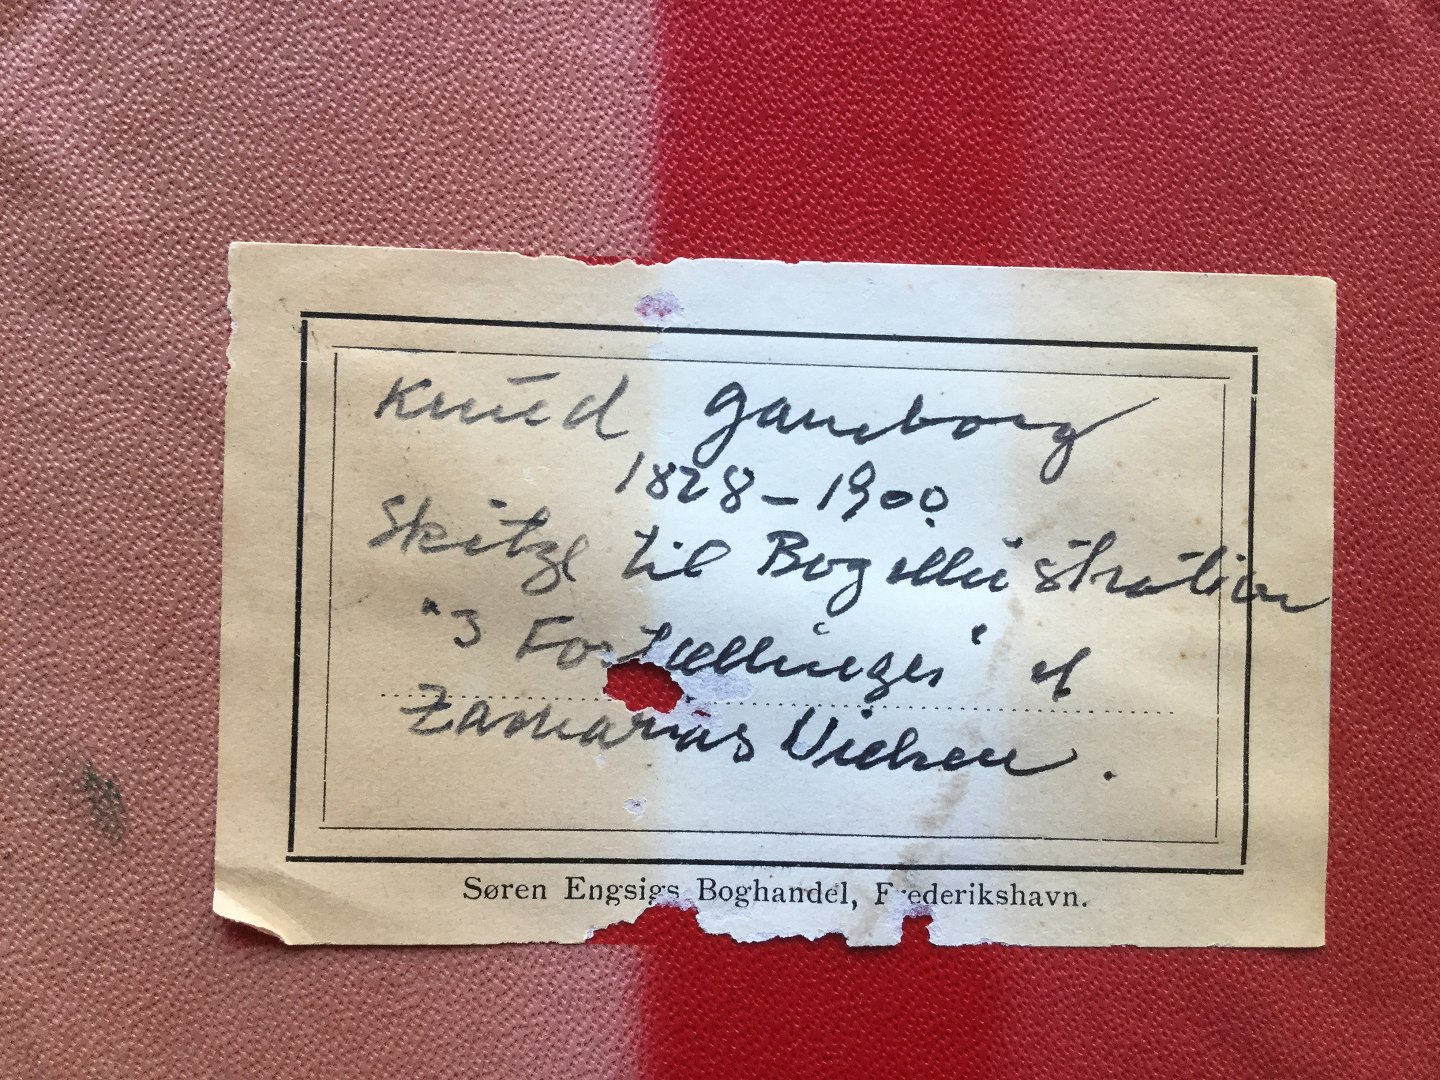 Knud Gamborg
1828-1900
Skitze til Bogillustration
"3 Fortællinger" af
Zakarias Nielsen.
Søren Engsigs Boghandel, Frederikshavn.